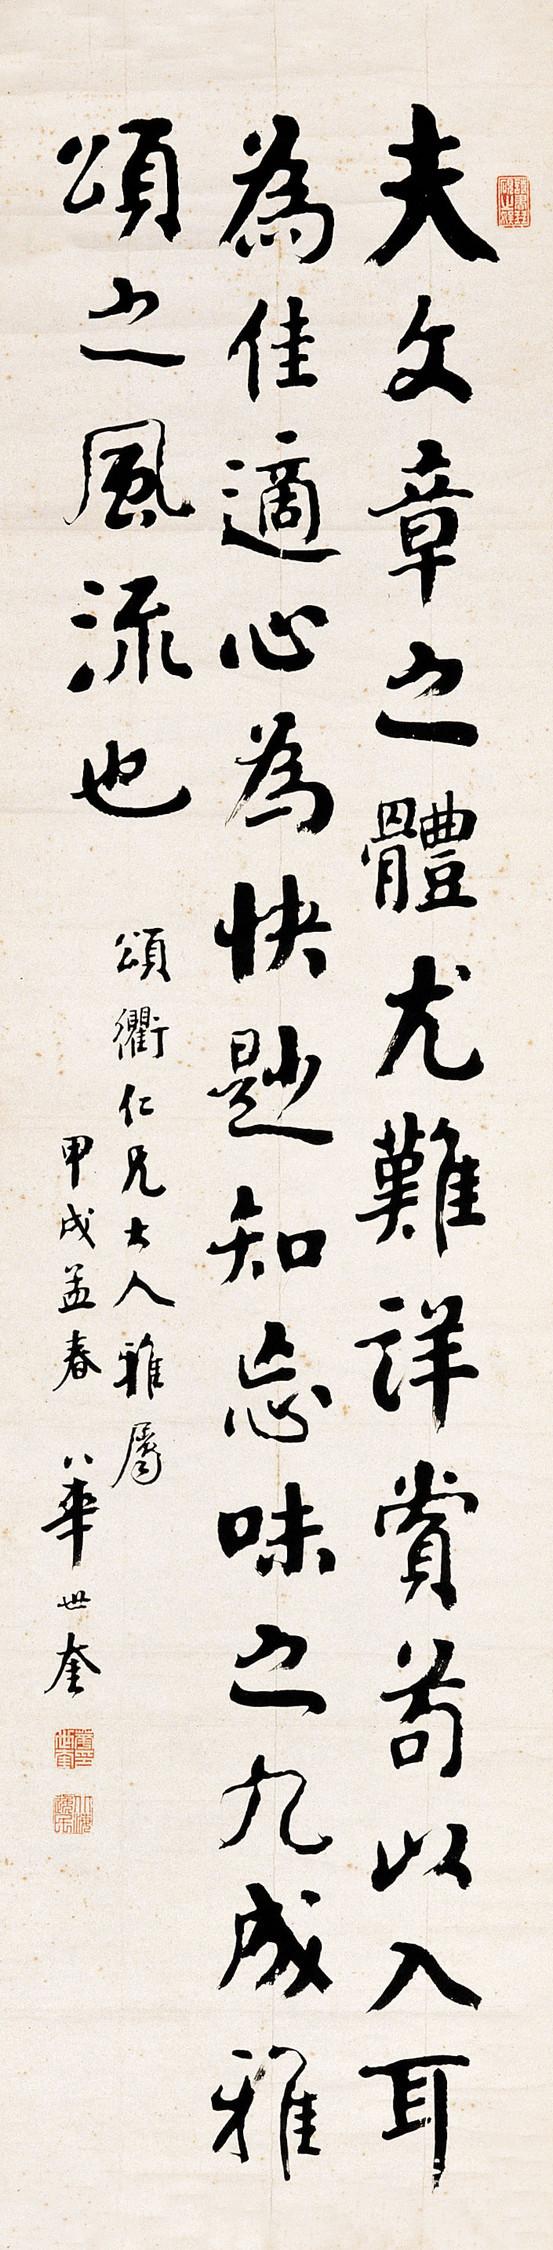 夫文章之體尤難詳賞苟以入耳
為佳適心為快尟知忘味之九成雅
頌之風流也
頌衢仁兄大人雅屬
甲戌孟春 弟華世奎